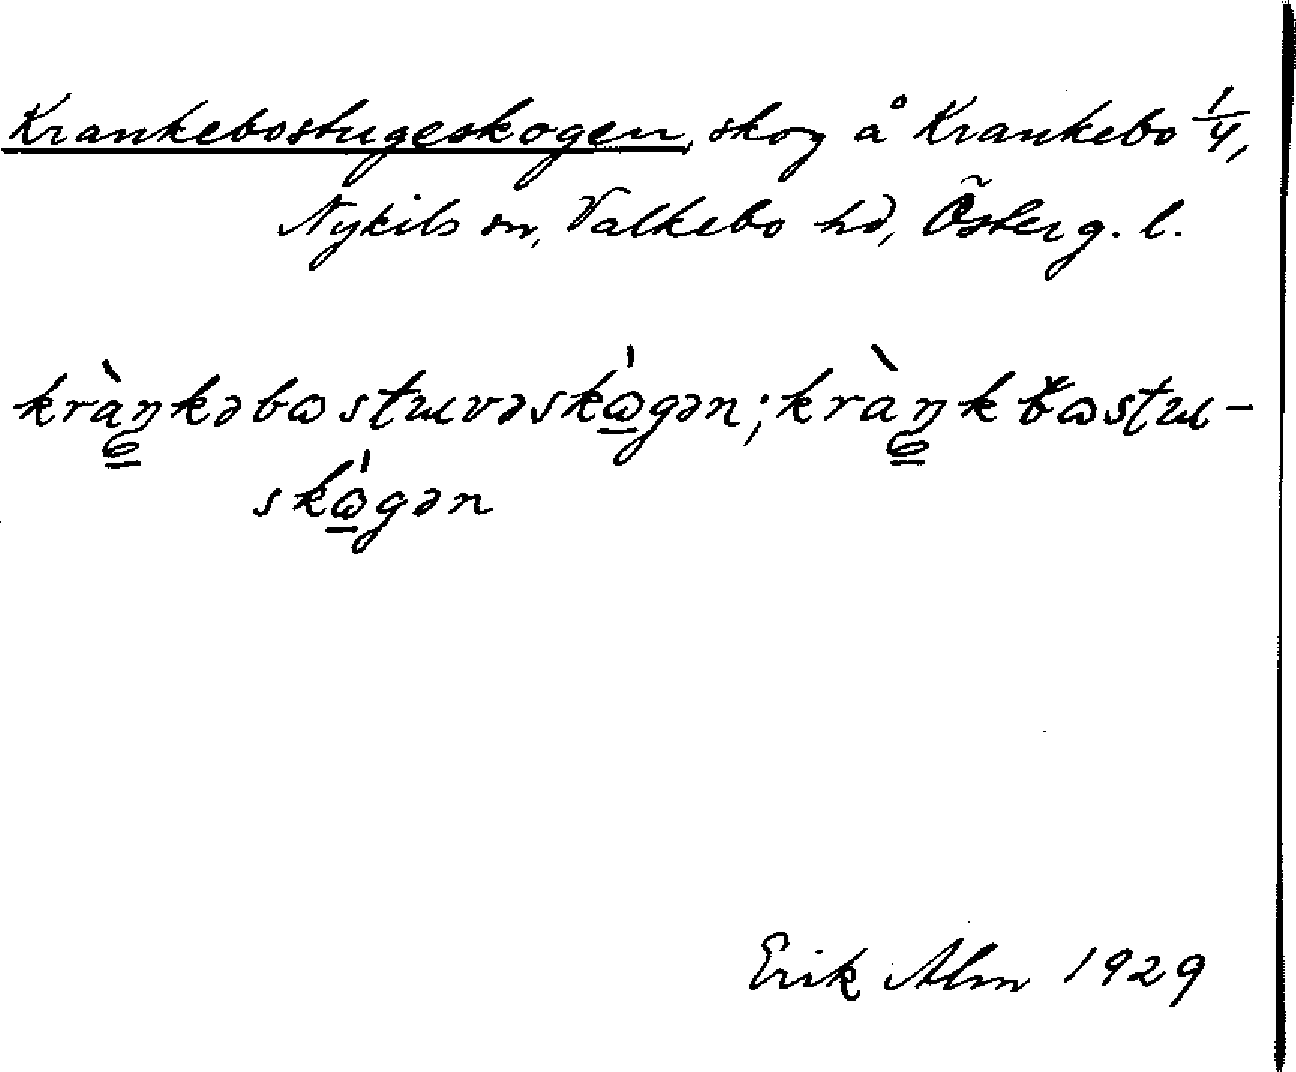 Krankebostugeskogen, skog å Krankebo 1/4,
Nykils sn, Valkebo hd, Österg. l.
kràŋkəbωstɯvəskὼgən; kràŋkbωstɯ-
skὼgən
Erik Alm 1929